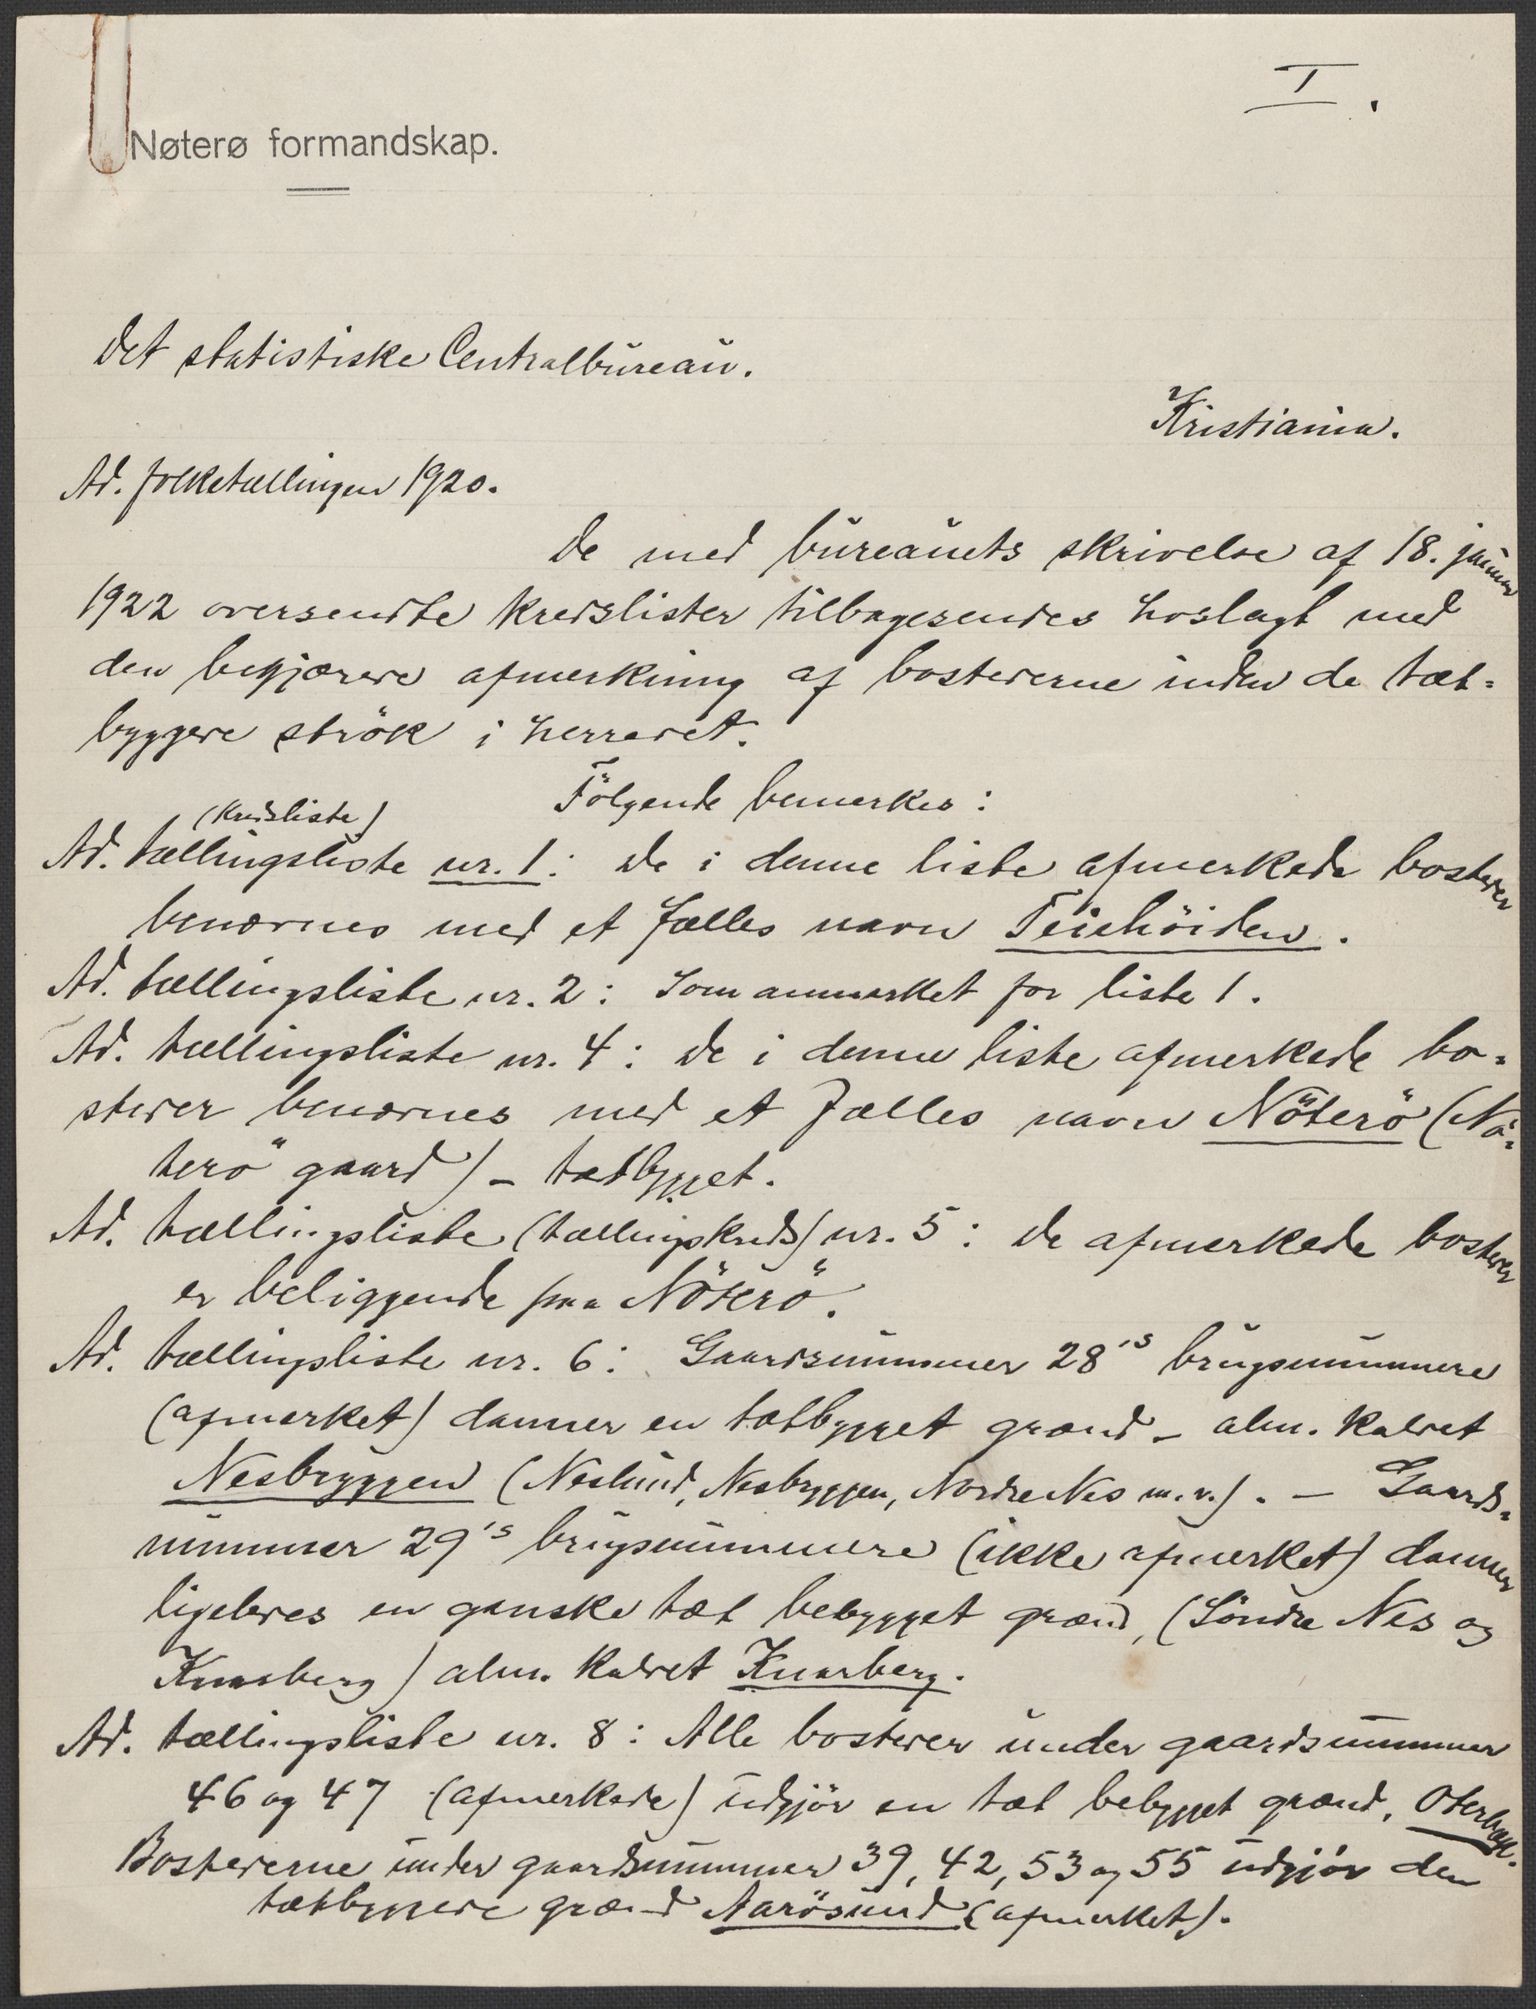 I.
Nøterø formandskap.
Det statistiske Centralbureau.
Kristiania.
Ad. folketællingen 1920.
De med bureauets skrivelse af 18. januar
1922 oversendte kredslister tilbagesendes hoslagt med
den begjærede afmerkning af bostederne inden de tæt-
byggede strök i herredet.
Fölgende bemerkes:
(kredsliste)
Ad. tællingsliste nr. 1: De i denne liste afmerkede bosteder
benævnes med et fælles navn Teiehöiden.
Ad. tællingsliste nr. 2: Som anmerket for liste 1.
Ad. tællingsliste nr. 4: De i denne liste afmerkede bo-
steder benævnes med et fælles navn Nöterö (Nö-
terö gaard) - tætbygget.
Ad. tællingsliste (tællingskreds) nr. 5: De afmerkede bosteder
er beliggende paa Nöterö.
Ad. tællingsliste nr. 6: Gaardsnummer 28's brugsnummere
(afmerket) danner en tætbygget grænd - alm. kaldet
Nesbryggen (Neslund, Nesbryggen, Nordre Nes m.v.). - Gaards-
nummer 29's brugsnummere (ikke afmerket) danner
ligeledes en ganske tæt bebygget grænd, (Söndre Nes og
Knarberg) alm. kaldet Knarberg.
Ad. tællingsliste nr. 8: Alle bosteder under gaardsnummer
46 og 47 (afmerkede) udgjör en tæt bebygget grænd, Oterbæk.
Bostederne under gaardsnummer 39, 42, 53 og 55 udgjör den
tætbyggede grænd Aarösund (afmerket).